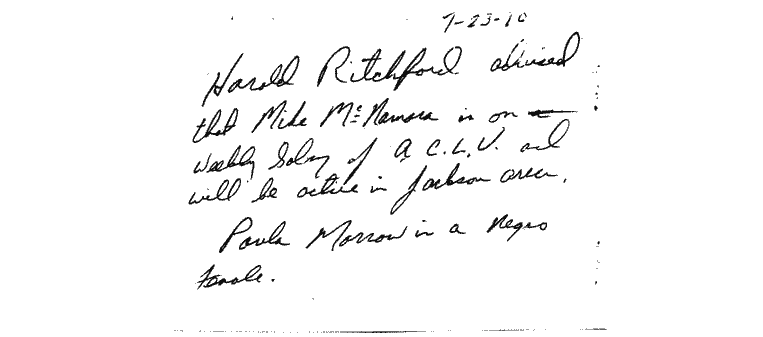 7-23-70
Harold Ritchford advised
that Mike McNamara is on
weekly Salary of A.C.L.U. and
will be active in Jackson area.
Paula Morrow is a Negro
Female.